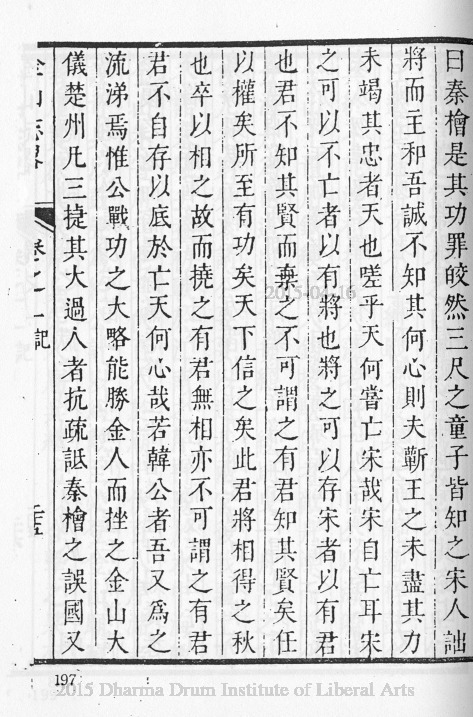 曰秦檜是其功罪皎然三尺之童子皆知之宋人詘
將而主和吾誠不知其何心則夫蘄王之未盡其力
未竭其忠者天也嗟乎天何嘗亡宋哉宋自亡耳宋
之可以不亡者以有將也將之可以存宋者以有君
也君不知其賢而棄之不可謂之有君知其賢矣任
以權矣所至有功矣天下信之矣此君將相得之秋
也卒以相之故而撓之有君無相亦不可謂之有君
君不自存以底於亡天何心哉若韓公者吾又為之
流涕焉惟公戰功之大略能勝金人而挫之金山大
儀楚州凡三捷其大過人者抗疏詆秦檜之誤國又
金山志畧 卷之一 記
197
2015-04-16
2015 Dharma Drum Institute of Liberal Arts